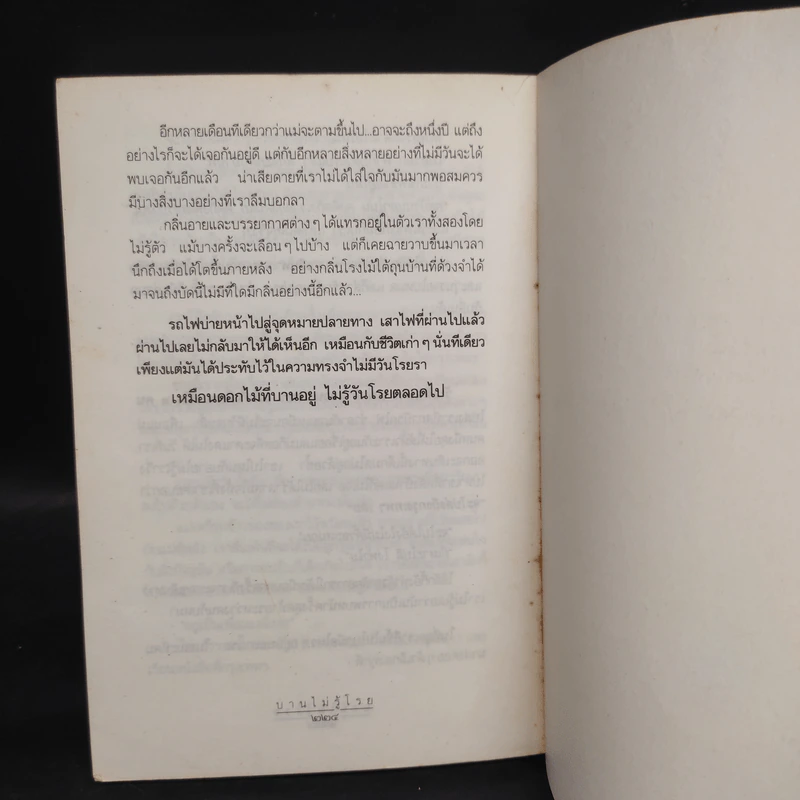 อีกหลายเดือนทีเดียวกว่าแม่จะตามขึ้นไป...อาจจะถึงหนึ่งปี แต่ถึง
อย่างไรก็จะได้เจอกันอยู่ดี แต่กับอีกหลายสิ่งหลายอย่างที่ไม่มีวันจะได้
พบเจอกันอีกแล้ว น่าเสียดายที่เราไม่ได้ใส่ใจกับมันมากพอสมควร
มีบางสิ่งบางอย่างที่เราลืมบอกลา
กลิ่นอายและบรรยากาศต่าง ๆ ได้แทรกอยู่ในตัวเราทั้งสองโดย
ไม่รู้ตัว แม้บางครั้งจะเลือน ๆ ไปบ้าง แต่ก็เคยฉายวาบขึ้นมาเวลา
นึกถึงเมื่อได้โตขึ้นภายหลัง อย่างกลิ่นโรงไม้ใต้ถุนบ้านที่ด้วงจำได้
มาจนถึงบัดนี้ไม่มีที่ใดมีกลิ่นอย่างนี้อีกแล้ว...
รถไฟบ่ายหน้าไปสู่จุดหมายปลายทาง เสาไฟที่ผ่านไปแล้ว
ผ่านไปเลยไม่กลับมาให้ได้เห็นอีก เหมือนกับชีวิตเก่า ๆ นั่นทีเดียว
เพียงแต่มันได้ประทับไว้ในความทรงจำไม่มีวันโรยรา
เหมือนดอกไม้ที่บานอยู่ ไม่รู้วันโรยตลอดไป
บานไม่รู้โรย
๒๒๔